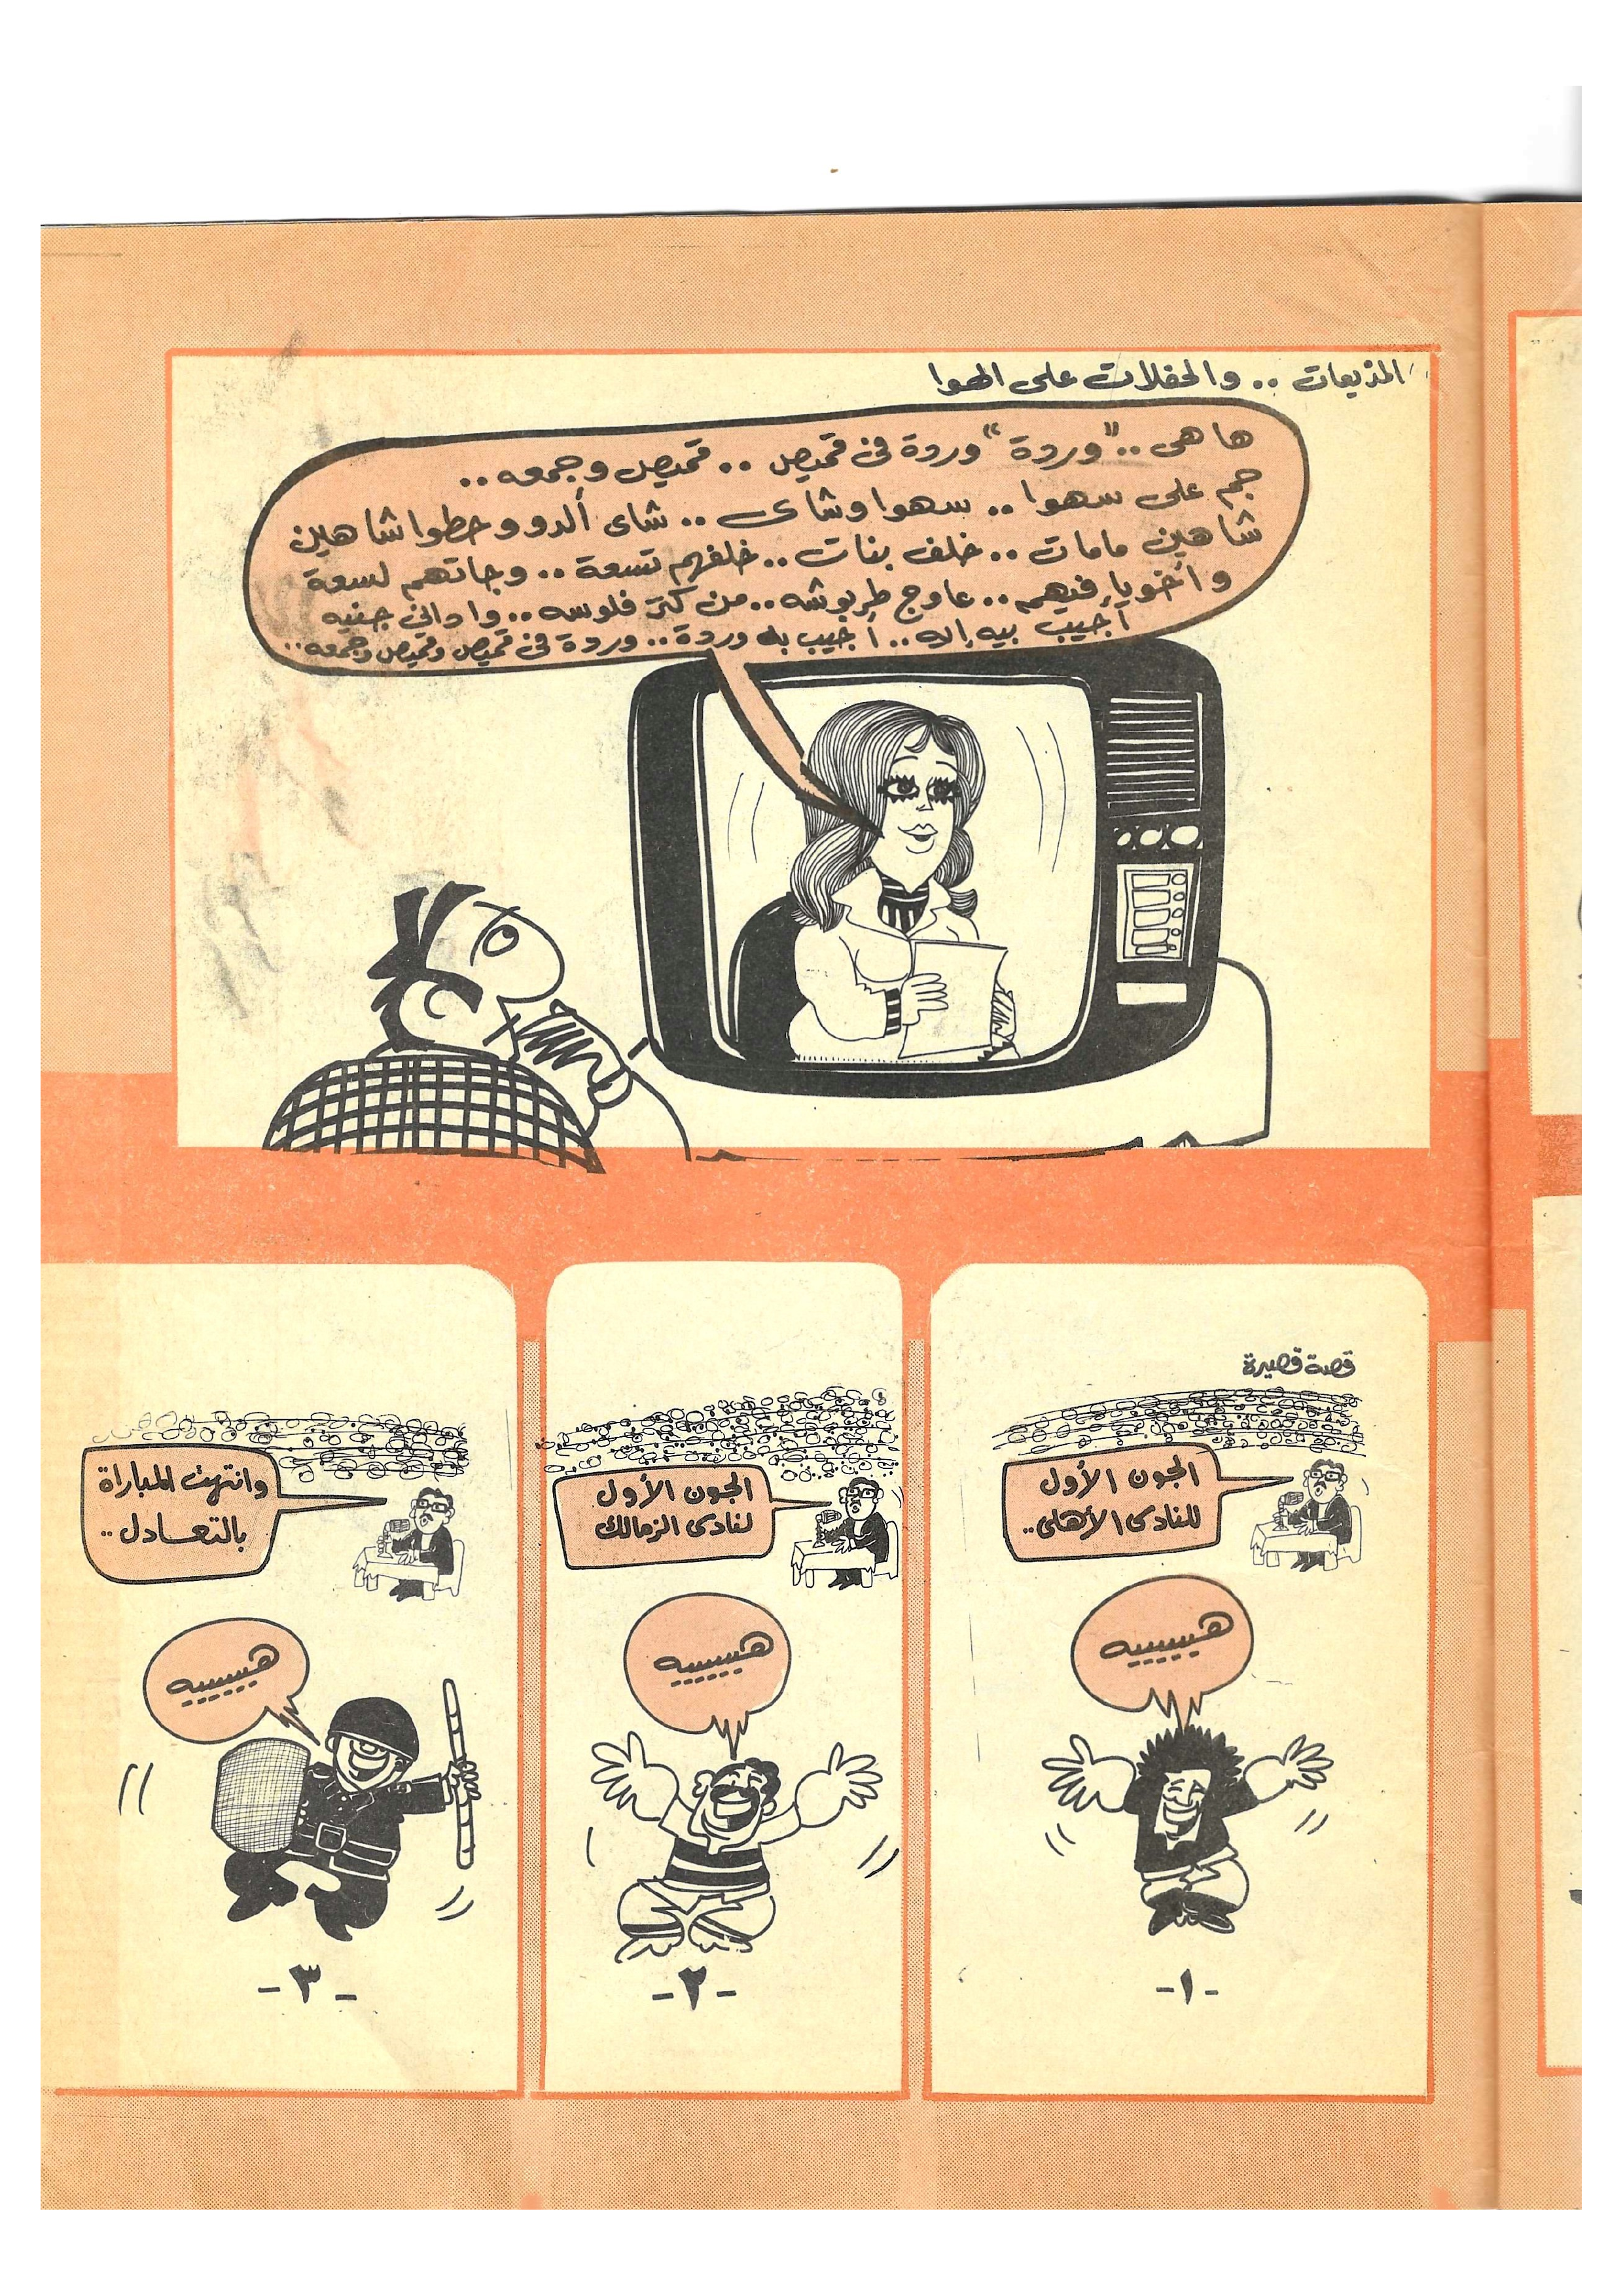 المذيعات .. والحفلات على الهوا
ها هى .. "وردة" وردة فى قميص .. قميص وجمعه ..
جم على سهوا .. سهوا وشاى .. شاى ألدو وحطوا شاهين
شاهين مامات .. خلف بنات .. خلفهم تسعة .. وجاتهم لسعة
وأخويا فيهم .. عاوج طربوشه .. من كتر فلوسه .. وادانى جنيه
أجيب بيه إيه .. أجيب به وردة .. وردة فى قميص وقميص وجمعه ..
قصة قصيرة
الجون الأول
للنادى الأهلى ..
هيييييييه
-١-
الجون الأول
لنادى الزمالك
هيييييييه
-٢-
وانتهت المباراة
بالتعادل ..
هيييييييه
-٣-